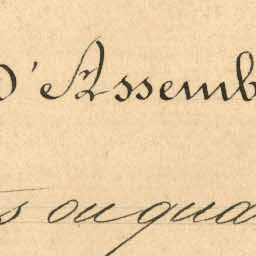 D'Assemb
s ou qua